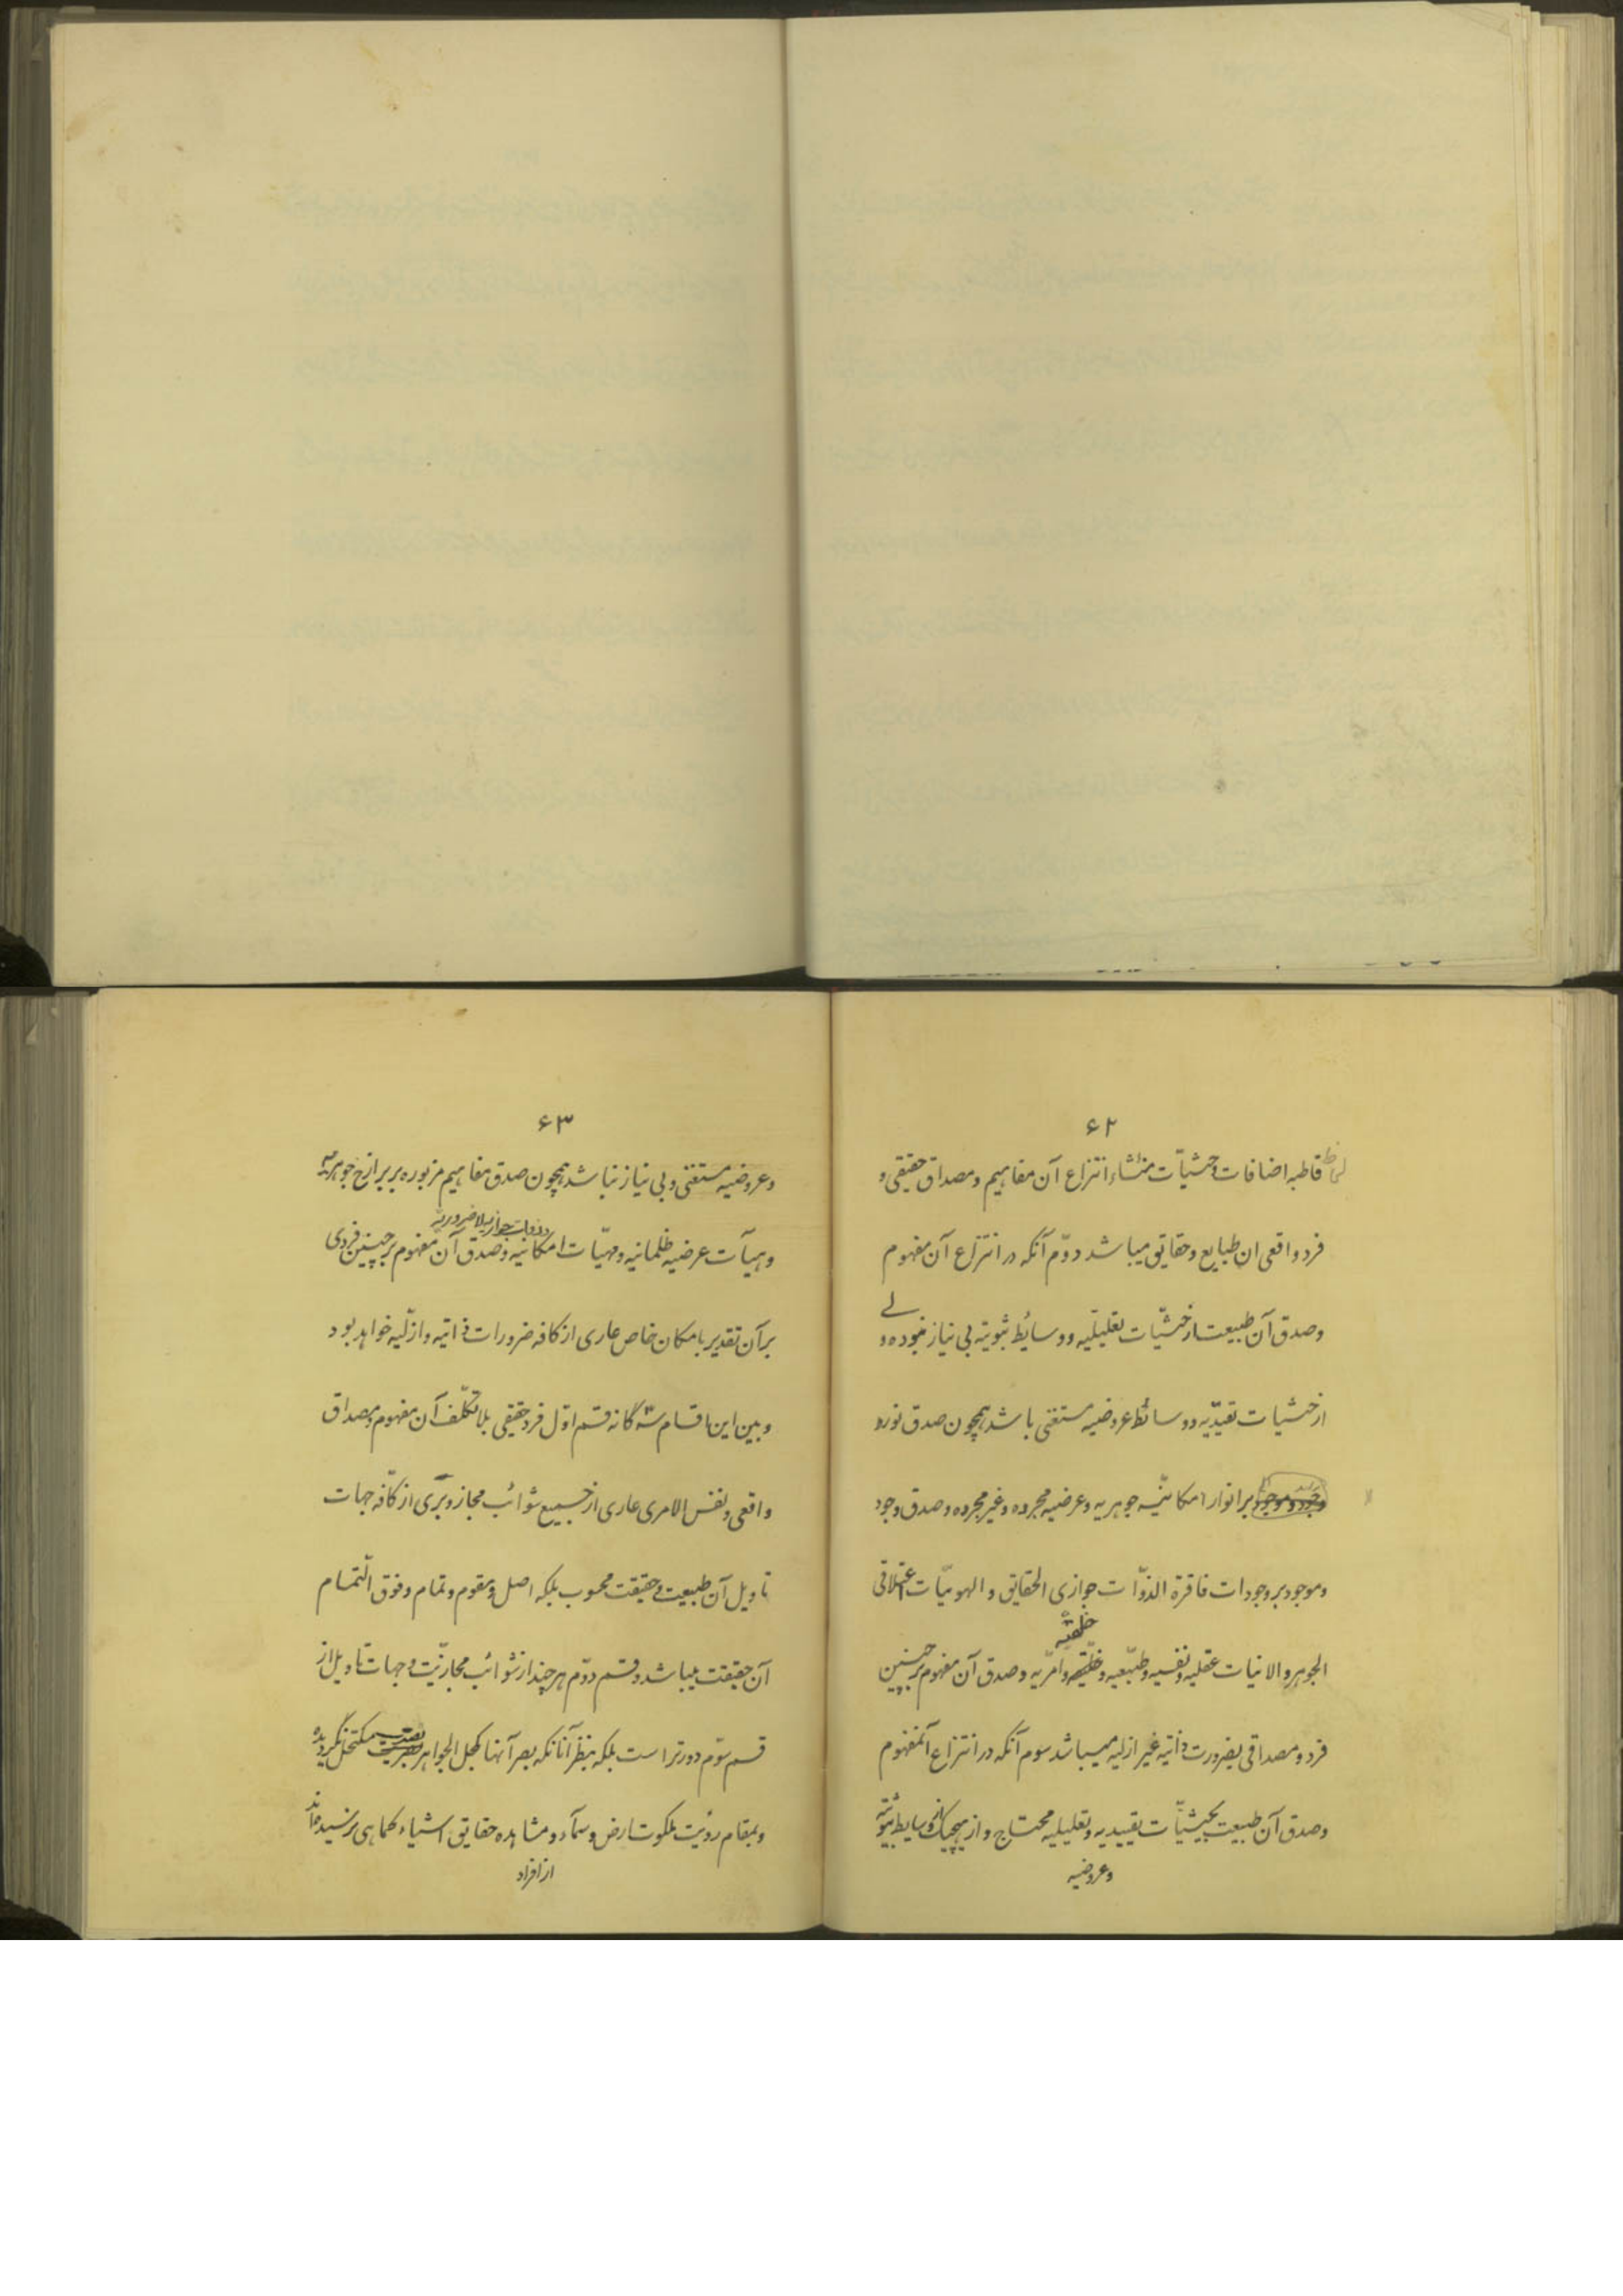 ۶۲
قاطبه اضافات و حیثیّات منشاء انتزاع آن مفاهیم و مصداق حقیقی و
فرد واقعی ان طبایع و حقایق میباشد دوّم آنکه در انتزاع آن مفهوم
و صدق آن طبیعت از حیثیّات تعلیلیّه و وسائط ثبوتیّه بی نیاز نبوده و لے
از حیثیات تقیدّیه و وسائط عروضیه مستغنی باشد همچون صدق نور و
بر انوار امکانیّه جوهریه و عرضیه مجرده و غیر مجرده و صدق وجود
و موجود بر وجودات فاقرة الذوّات جوازی الحقایق و الهویّات
الجوهر و الانیات عقلیه و نفسیه و طبیّعیه و خلقیّه و امّریه و صدق آن مفهوم بر چنین
خلقیّه
فرد و مصداقی بضرورت ذاتیه غیر ازلیه میباشد سوم آنکه در انتزاع آنمفهوم
و صدق آن طبیعت بحیثیّات تقییدیه و تعلیلیه محتاج و از هیچیک از وسایط ثبوتیّه
و عروضیه
۶۳
و عروضیه مستغنی و بی نیاز نباشد همچون صدق مفاهیم مزبوره بر برازخ جوهریّه
و ذوات جوازیه لاضروریّه
و هیآت عرضیه ظلمانیه و مهیّات امکانیه و صدق آن مفهوم بر چنین فردی
بر آن تقدیر بامکان خاص عاری از کافه ضرورات ذاتیه و ازلّیه خواهد بود
و بین این اقسام سه گانه قسم اوّل فرد حقیقی بلا تکلّف آن مفهوم و مصداق
واقعی و نفس الامری عاری از جمیع شوائب مجاز و برّی از کافّه جهات
تاویل آن طبیعت و حقیقت محسوب بلکه اصل و مقوم و تمام و فوق التّمام
آن حقیقت میباشد و قسم دوّم هر چند از شوائب مجازیّت و جهات تاویل از
قسم سوّم دورتر است بلکه بنظر آنانکه بصر آنها بکحل الجواهر بصیرت مکتحل نگردیده
و بمقام رؤیت ملکوت ارض و سمآء و مشاهده حقایق اشیاء کماهی نرسیده اند
از افراد